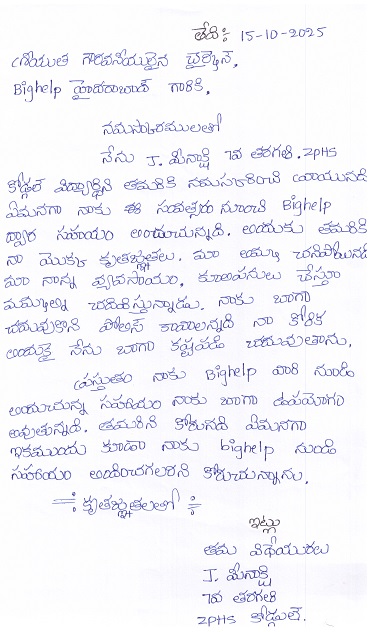 తేది: 15-10-2025
శ్రీయుత గౌరవనీయులైన ఛైర్మైన్,
Bighelp హైదరాబాద్ గారికి,
నమస్కారములతో
నేను J. మీనాక్షి 7వ తరగతి. ZPHS
కోడ్గల్ విద్యార్థిని తమరికి నమస్కరించి వ్రాయునది
ఏమనగా నాకు ఈ సంవత్సరం నుంచి Bighelp
ద్వార సహాయం అందుచున్నది. అందుకు తమరికి
నా యొక్క కృతజ్ఞతలు. మా అమ్మ చనిపోయినది
మా నాన్న వ్యవసాయం, కూలిపనులు చేస్తూ
మమ్మల్ని చదివిస్తున్నాడు. నాకు బాగా
చదువుకొని పోలీస్ కావాలన్నది నా కోరిక
అందుకై నేను బాగా కష్టపడి చదువుతాను.
ప్రస్తుతం నాకు Bighelp వారి నుండి
అందుచున్న సహాయం నాకు బాగా ఉపయోగం
అవుతున్నది. తమరిని కోరునది ఏమనగా
ఇకముందు కూడా నాకు bighelp నుండి
సహాయం అందించగలరని కోరుచున్నాను.
కృతజ్ఞతలతో
ఇట్లు
తమ విధేయురాలు
J. మీనాక్షి
7వ తరగతి
ZPHS కోడ్గల్.